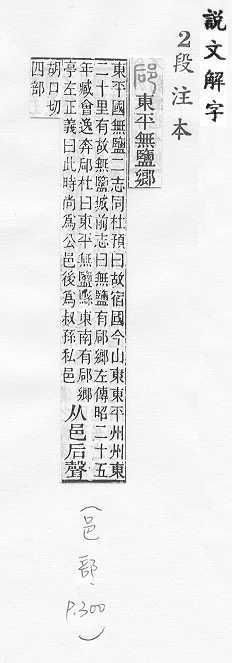 說文解字
2段注本
郈 東平無鹽鄉
東平國無鹽二志同杜預曰故宿國今山東東平州州東
二十里有故無鹽城前志曰無鹽有郈鄉左傳昭二十五
年臧會逸奔郈杜曰東平無鹽縣東南有郈鄉
亭左正義曰此時尚爲公邑後爲叔孫私邑 从邑后聲
胡口切
四部
(邑部.p.300)